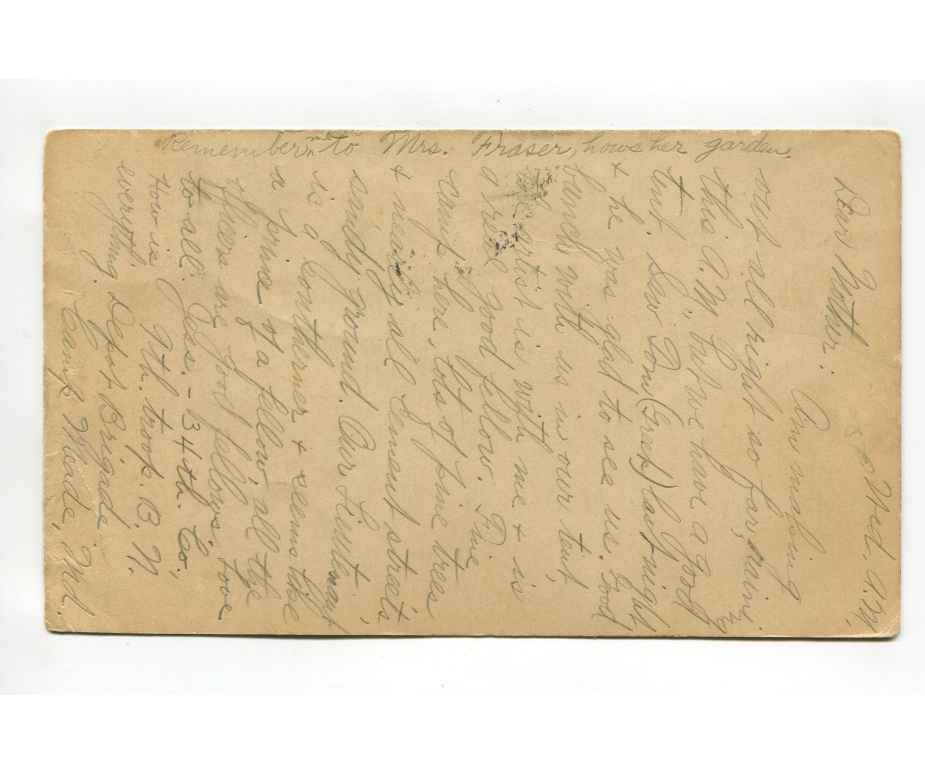 Wed. A.M.
Dear Mother: Am making
out all right so far, raining
this A.M. but we have a good
tent. Saw Tom (Grant) last night
& he was glad to see us. Good
bunch with us in our tent,
artist is with me & is
a real good fellow. Fine
camp here, lots of pine trees
& nearly all cement streets,
sandy ground. Our Lieutenant
is a Southerner & seems like
a prince of a fellow, all the
officers are good fellows. Love
to all. Jess - 34th. Co.,
How is 9th. troop. B. N.
everything. Depot Brigade
Camp Meade, Md.
Remember me to Mrs. Fraser, hows her garden.